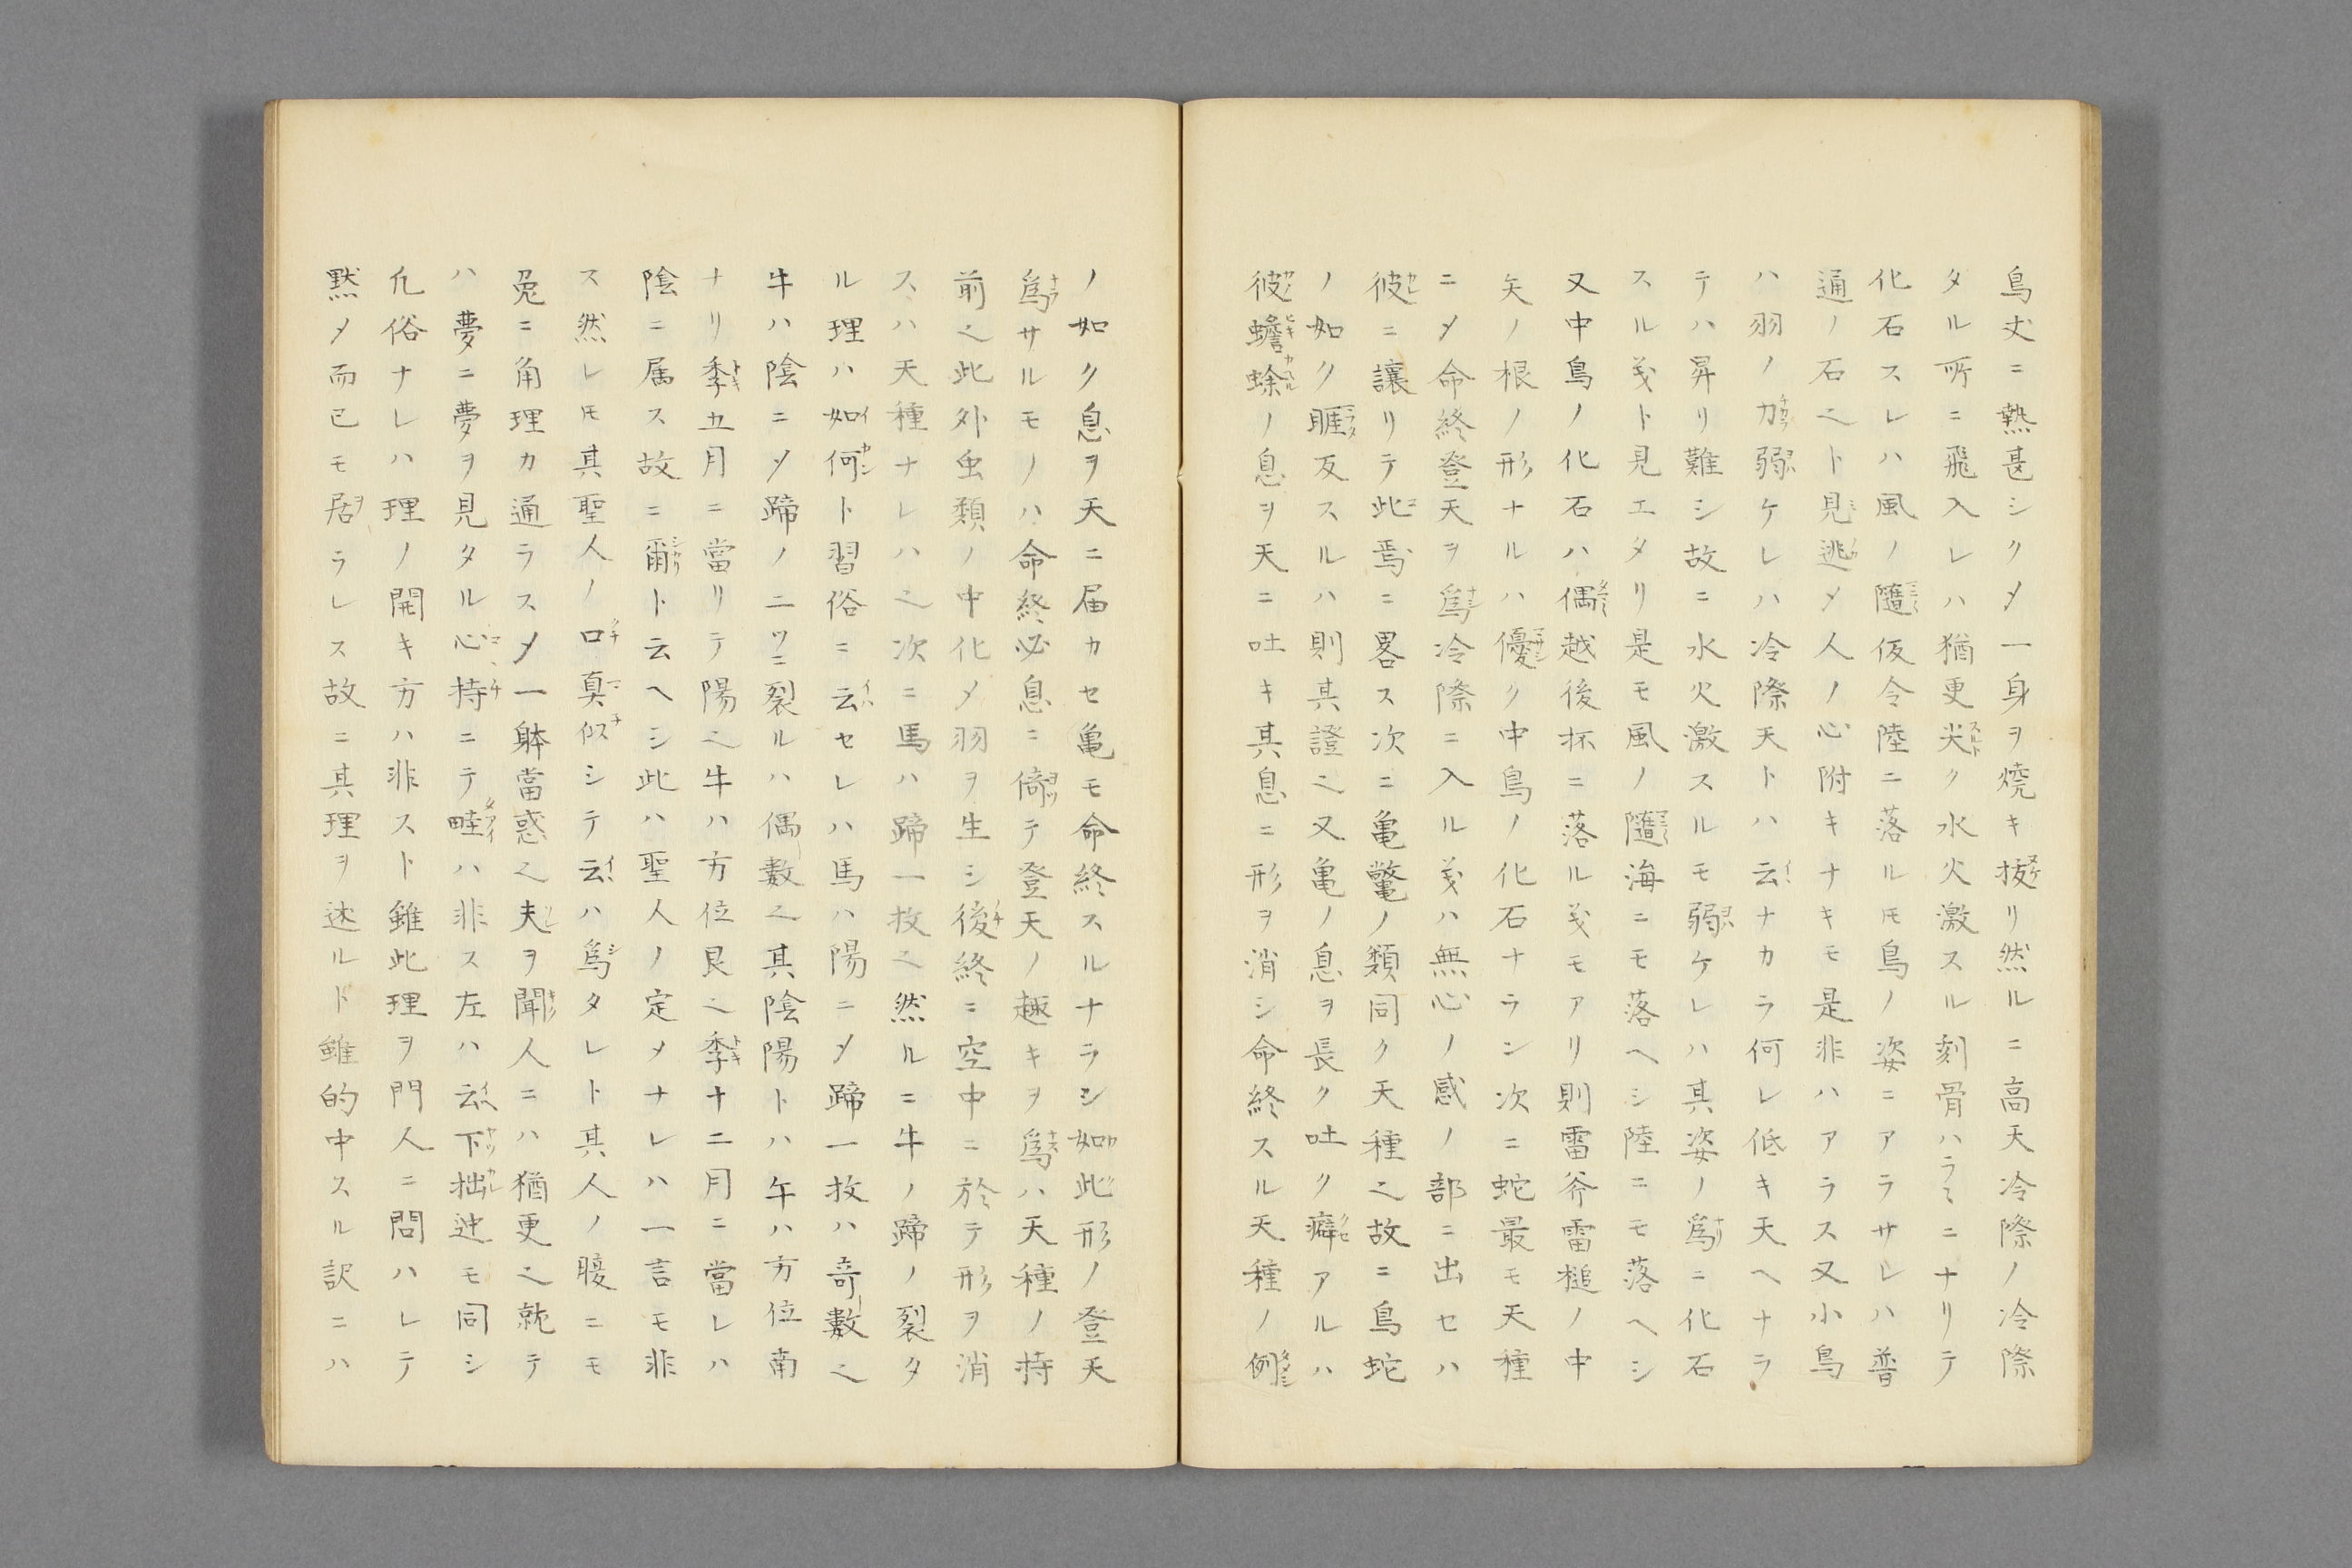 鳥丈ニ熱甚シクメ一身ヲ焼キ抜リ然ルニ高天冷際ノ冷際
タル所ニ飛入レハ猶更尖ク水火激スル刻骨ハラミニナリテ
化石スレハ風ノ隨仮令陸ニ落ルモ鳥ノ姿ニアラサレハ普
通ノ石之ト見逃メ人ノ心附キナキモ是非ハアラス又小鳥
ハ羽ノ力弱ケレハ冷際天トハ云ナカラ何レ低キ天ヘナラ
テハ昇リ難シ故ニ水火激スルモ弱ケレハ其姿ノ爲ニ化石
スル義ト見エタリ是モ風ノ隨海ニモ落ヘシ陸ニモ落ヘシ
又中鳥ノ化石ハ偶越後抔ニ落ル義モアリ則雷斧雷槌ノ中
矢ノ根ノ形ナルハ優ク中鳥ノ化石ナラン次ニ蛇最モ天種
ニメ命終登天ヲ爲冷際ニ入ル義ハ無心ノ感ノ部ニ出セハ
彼ニ讓リテ此焉ニ畧ス次ニ亀鼈ノ類同ク天種之故ニ鳥蛇
ノ如ク睚反スルハ則其證之又亀ノ息ヲ長ク吐ク癖アルハ
彼蟾蜍ノ息ヲ天ニ吐キ其息ニ形ヲ消シ命終スル天種ノ例
ノ如ク息ヲ天ニ届カセ亀モ命終スルナラン如此形ノ登天
爲サルモノハ命終必息ニ倚テ登天ノ趣キヲ爲ハ天種ノ持
前之此外虫類ノ中化メ羽ヲ生シ後終ニ空中ニ於テ形ヲ消
スハ天種ナレハ之次ニ馬ハ蹄一枚之然ルニ牛ノ蹄ノ裂タ
ル理ハ如何ト習俗ニ云セレハ馬ハ陽ニメ蹄一枚ハ奇數之
牛ハ陰ニメ蹄ノ二ツニ裂ルハ偶數之其陰陽トハ午ハ方位南
ナリ季五月ニ當リテ陽之牛ハ方位艮之季十二月ニ當レハ
陰ニ属ス故ニ爾ト云ヘシ此ハ聖人ノ定メナレハ一言モ非
ス然レモ其聖人ノ口真似シテ云ハ爲タレト其人ノ腹ニモ
兎ニ角理カ通ラスメ一躰當惑之夫ヲ聞人ニハ猶更之就テ
ハ夢ニ夢ヲ見タル心持ニテ畦ハ非ス左ハ云下拙迚モ同シ
凡俗ナレハ理ノ開キ方ハ非スト雖此理ヲ門人ニ問ハレテ
黙メ而已モ居ラレス故ニ其理ヲ述ルト雖的中スル訳ニハ